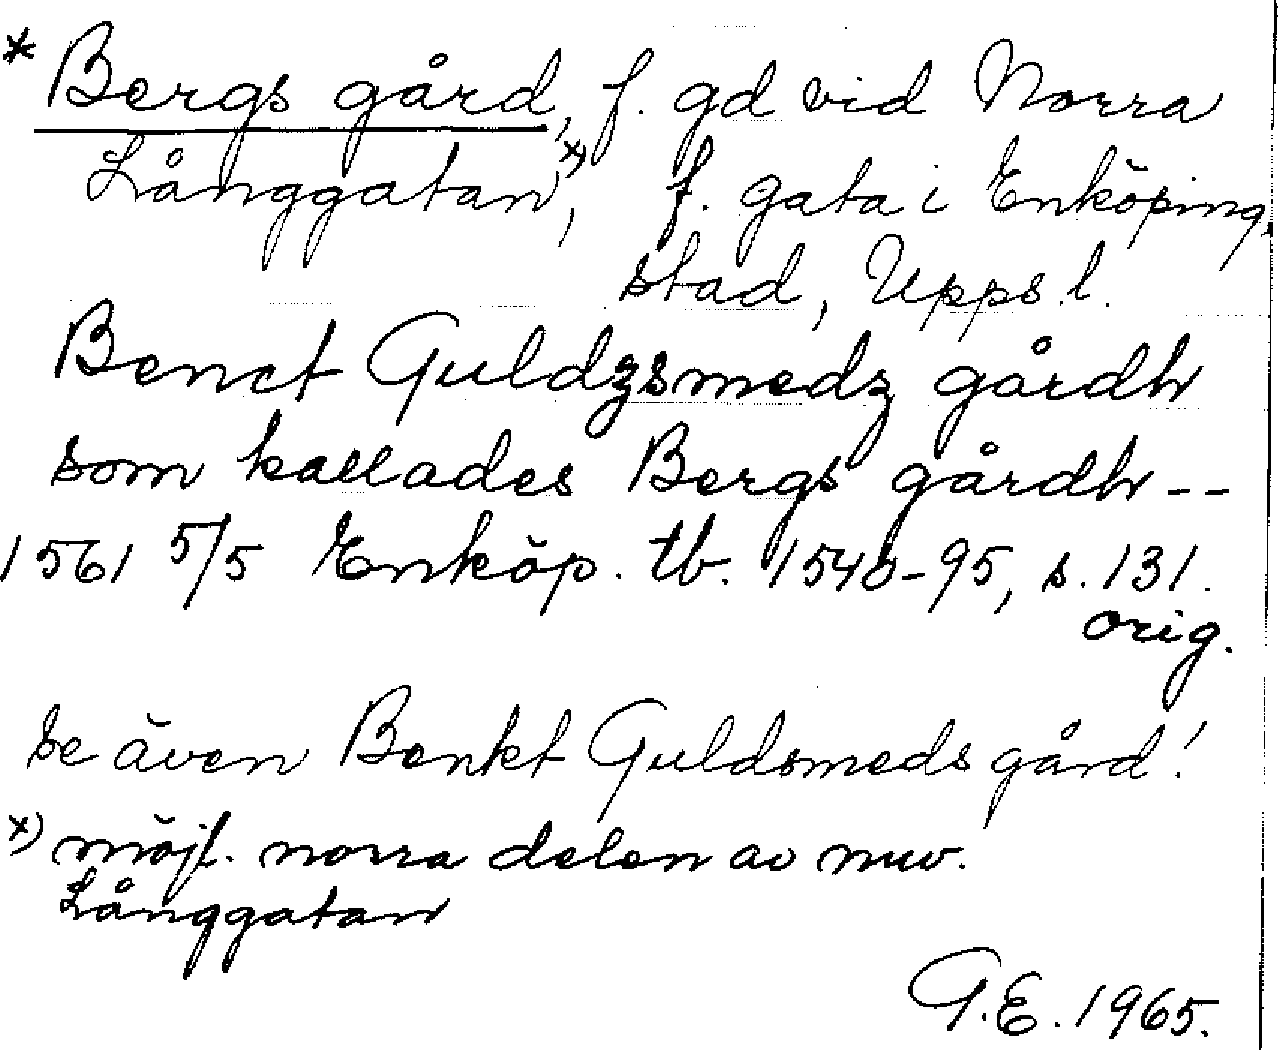 * Bergs gård, f. gd vid Norra
Långgatan x), f. gata i Enköpings
stad, Upps. l.
Benct Guldzsmedz gårdh
som kallades Bergs gårdh --
1561 5/5 Enköp. tb. 1540-95, s. 131.
orig.
se även Benkt Guldsmeds gård!
x) möjl. norra delen av nuv.
Långgatan
G.E. 1965.